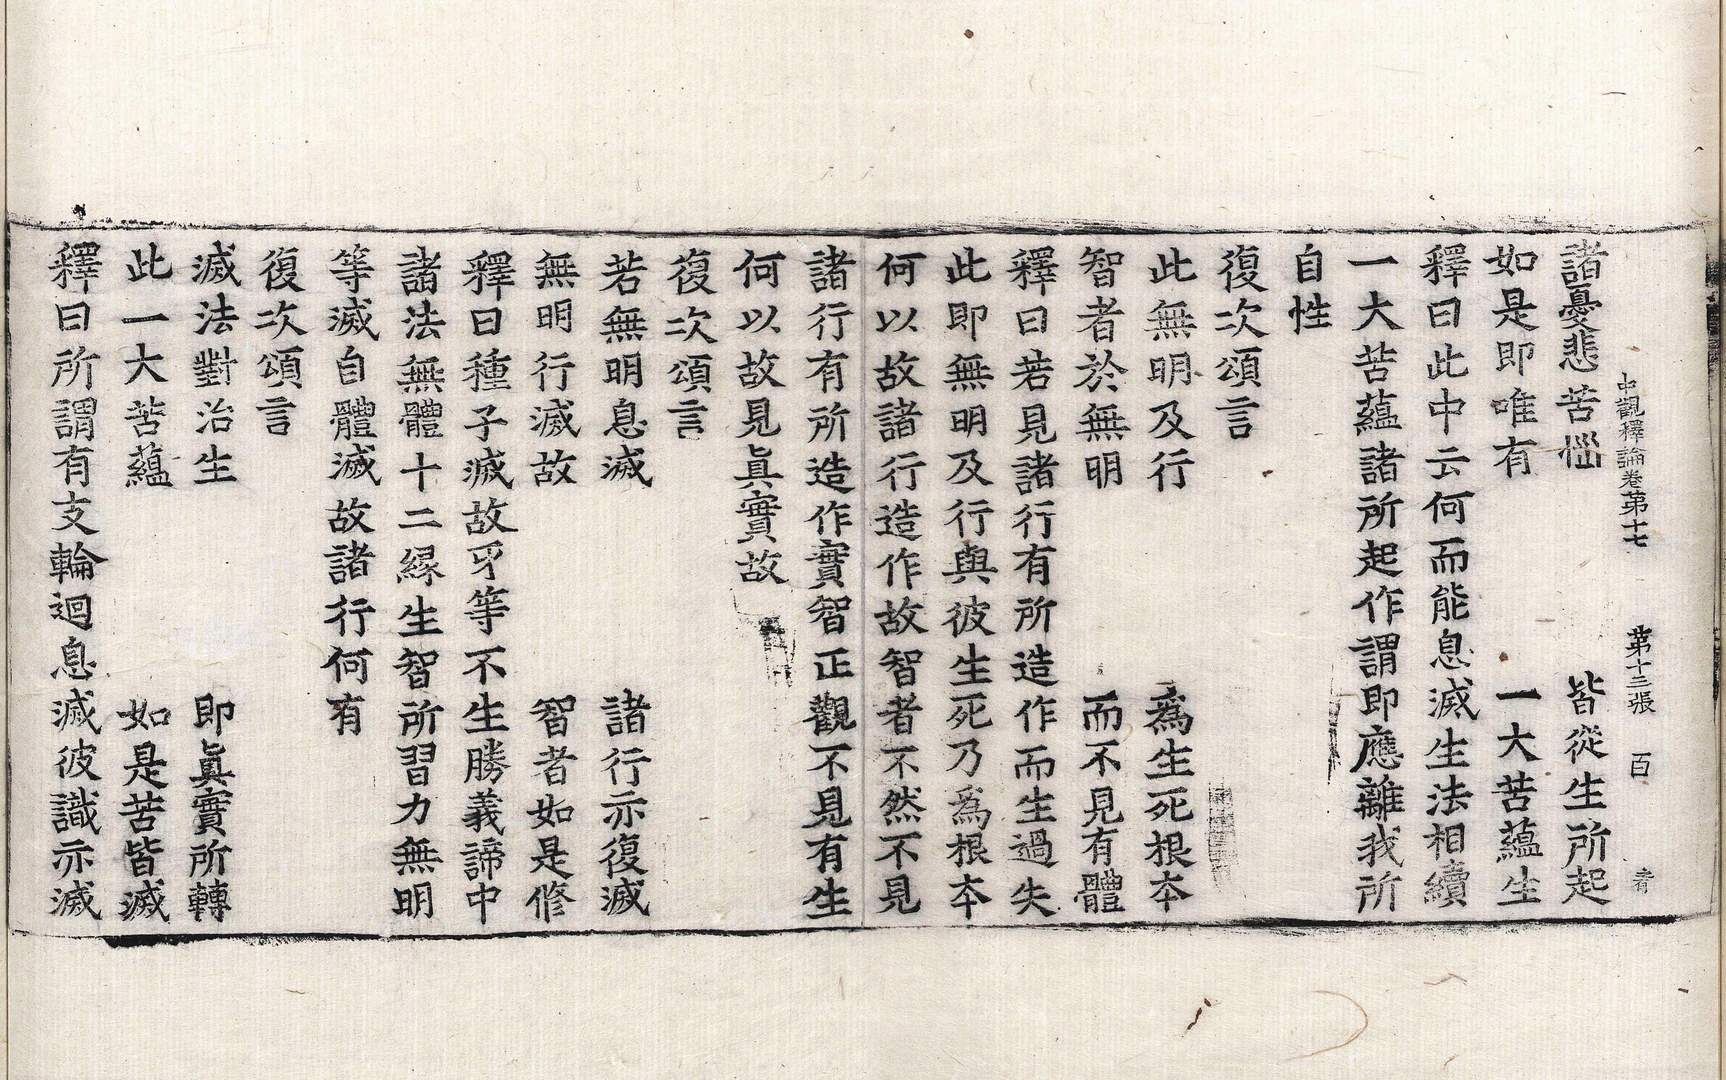 中觀釋論卷第十七　第十三張　百
諸憂悲苦惱　皆從生所起
如是即唯有　一大苦蘊生
釋曰此中云何而能息滅生法相續
一大苦蘊諸所起作謂即應離我所
自性
復次頌言
此無明及行　爲生死根本
智者於無明　而不見有體
釋曰若見諸行有所造作而生過失
此即無明及行與彼生死乃爲根本
何以故諸行造作故智者不然不見
諸行有所造作實智正觀不見有生
何以故見眞實故
復次頌言
若無明息滅　諸行亦復滅
無明行滅故　智者如是修
釋曰種子滅故牙等不生勝義諦中
諸法無體十二緣生智所習力無明
等滅自體滅故諸行何有
復次頌言
滅法對治生　即眞實所轉
此一大苦蘊　如是苦皆滅
釋曰所謂有支輪迴息滅彼識亦滅